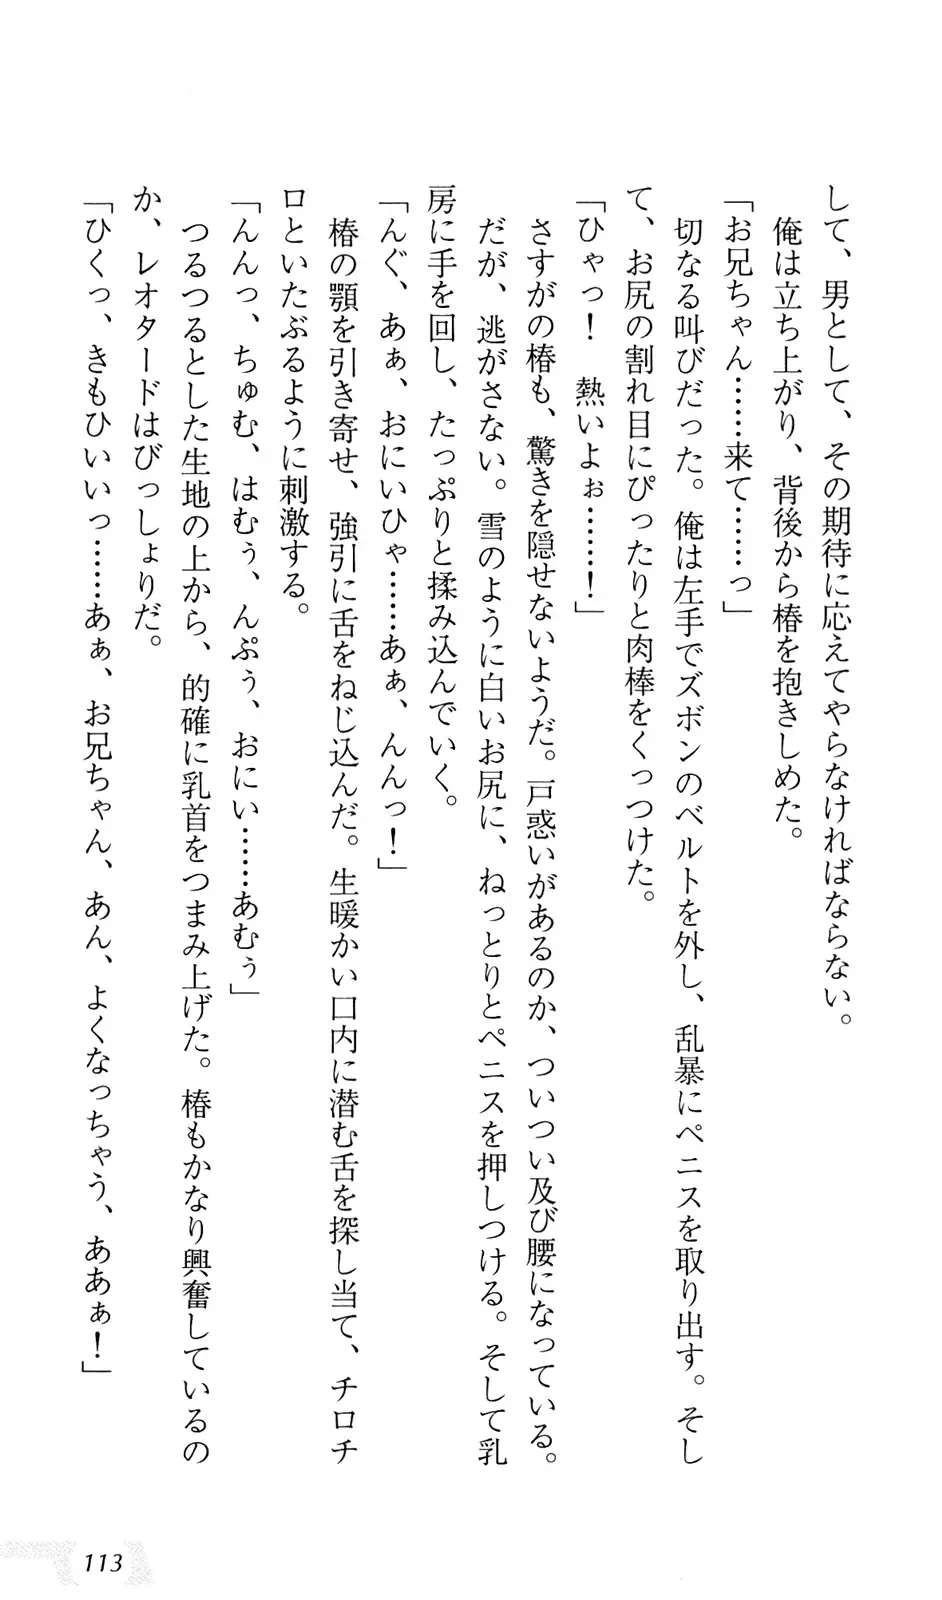 して、男として、その期待に応えてやらなければならない。
俺は立ち上がり、背後から椿を抱きしめた。
「お兄ちゃん……来て……っ」
切なる叫びだった。俺は左手でズボンのベルトを外し、乱暴にペニスを取り出す。そし
て、お尻の割れ目にぴったりと肉棒をくっつけた。
「ひゃっ！　熱いよぉ……！」
さすがの椿も、驚きを隠せないようだ。戸惑いがあるのか、ついつい及び腰になっている。
だが、逃がさない。雪のように白いお尻に、ねっとりとペニスを押しつける。そして乳
房に手を回し、たっぷりと揉み込んでいく。
「んぐ、あぁ、おにいひゃ……あぁ、んんっ！」
椿の顎を引き寄せ、強引に舌をねじ込んだ。生暖かい口内に潜む舌を探し当て、チロチ
ロといたぶるように刺激する。
「んんっ、ちゅむ、はむぅ、んぷぅ、おにい……あむぅ」
つるつるとした生地の上から、的確に乳首をつまみ上げた。椿もかなり興奮しているの
か、レオタードはびっしょりだ。
「ひくっ、きもひいいっ……あぁ、お兄ちゃん、あん、よくなっちゃう、ああぁ！」
113